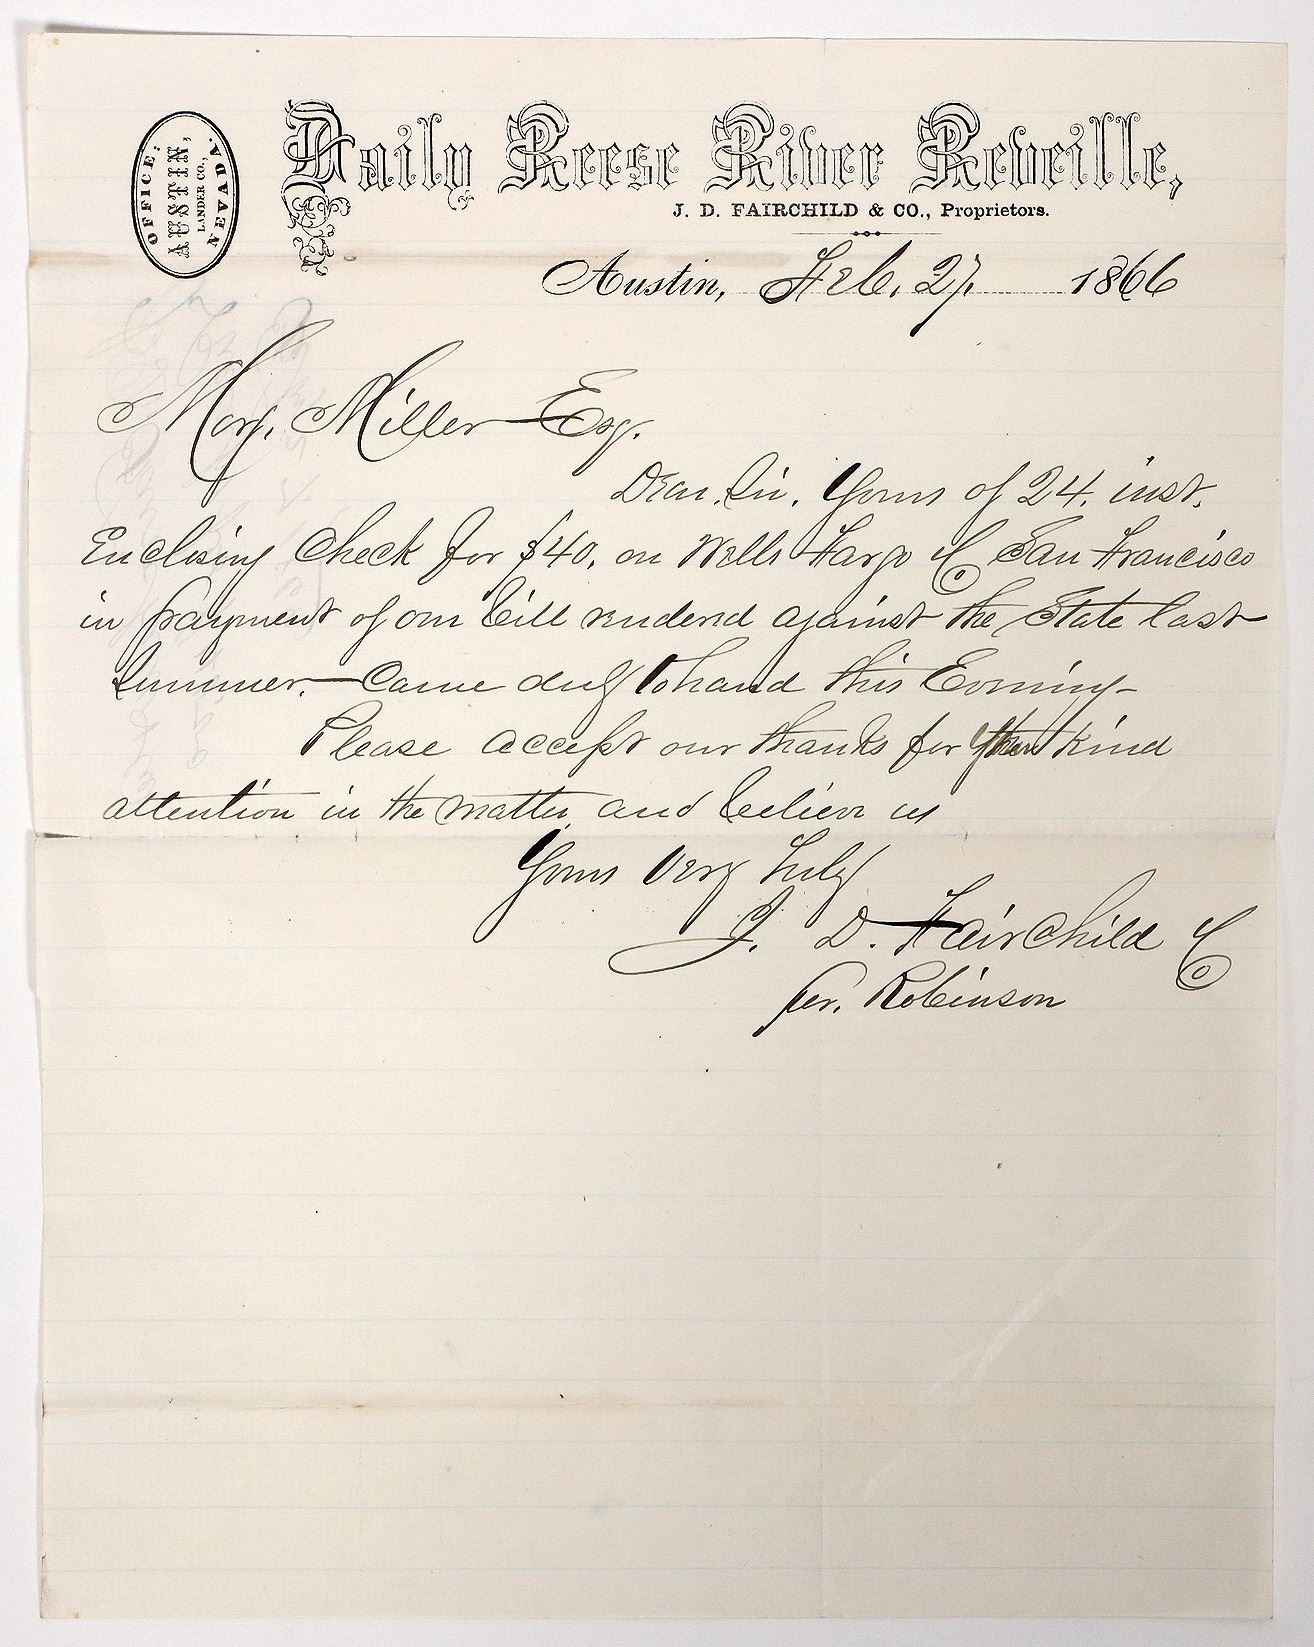 OFFICE:
AUSTIN,
LANDER CO.,
NEVADA.
Daily Reese River Reveille,
J. D. FAIRCHILD & CO., Proprietors.
Austin, Feb. 27. 1866
Miller Esq.
Dear Sir. Yours of 24. inst.
Enclosing Check for $40. on Wells Fargo & Co San Francisco
in payment of our bill rendered against the State last
Summer. — Came duly to hand this Evening —
Please accept our thanks for your kind
attention in the matter, and believe us
Yours Very Truly
J. D. Fairchild & Co
per. Robinson